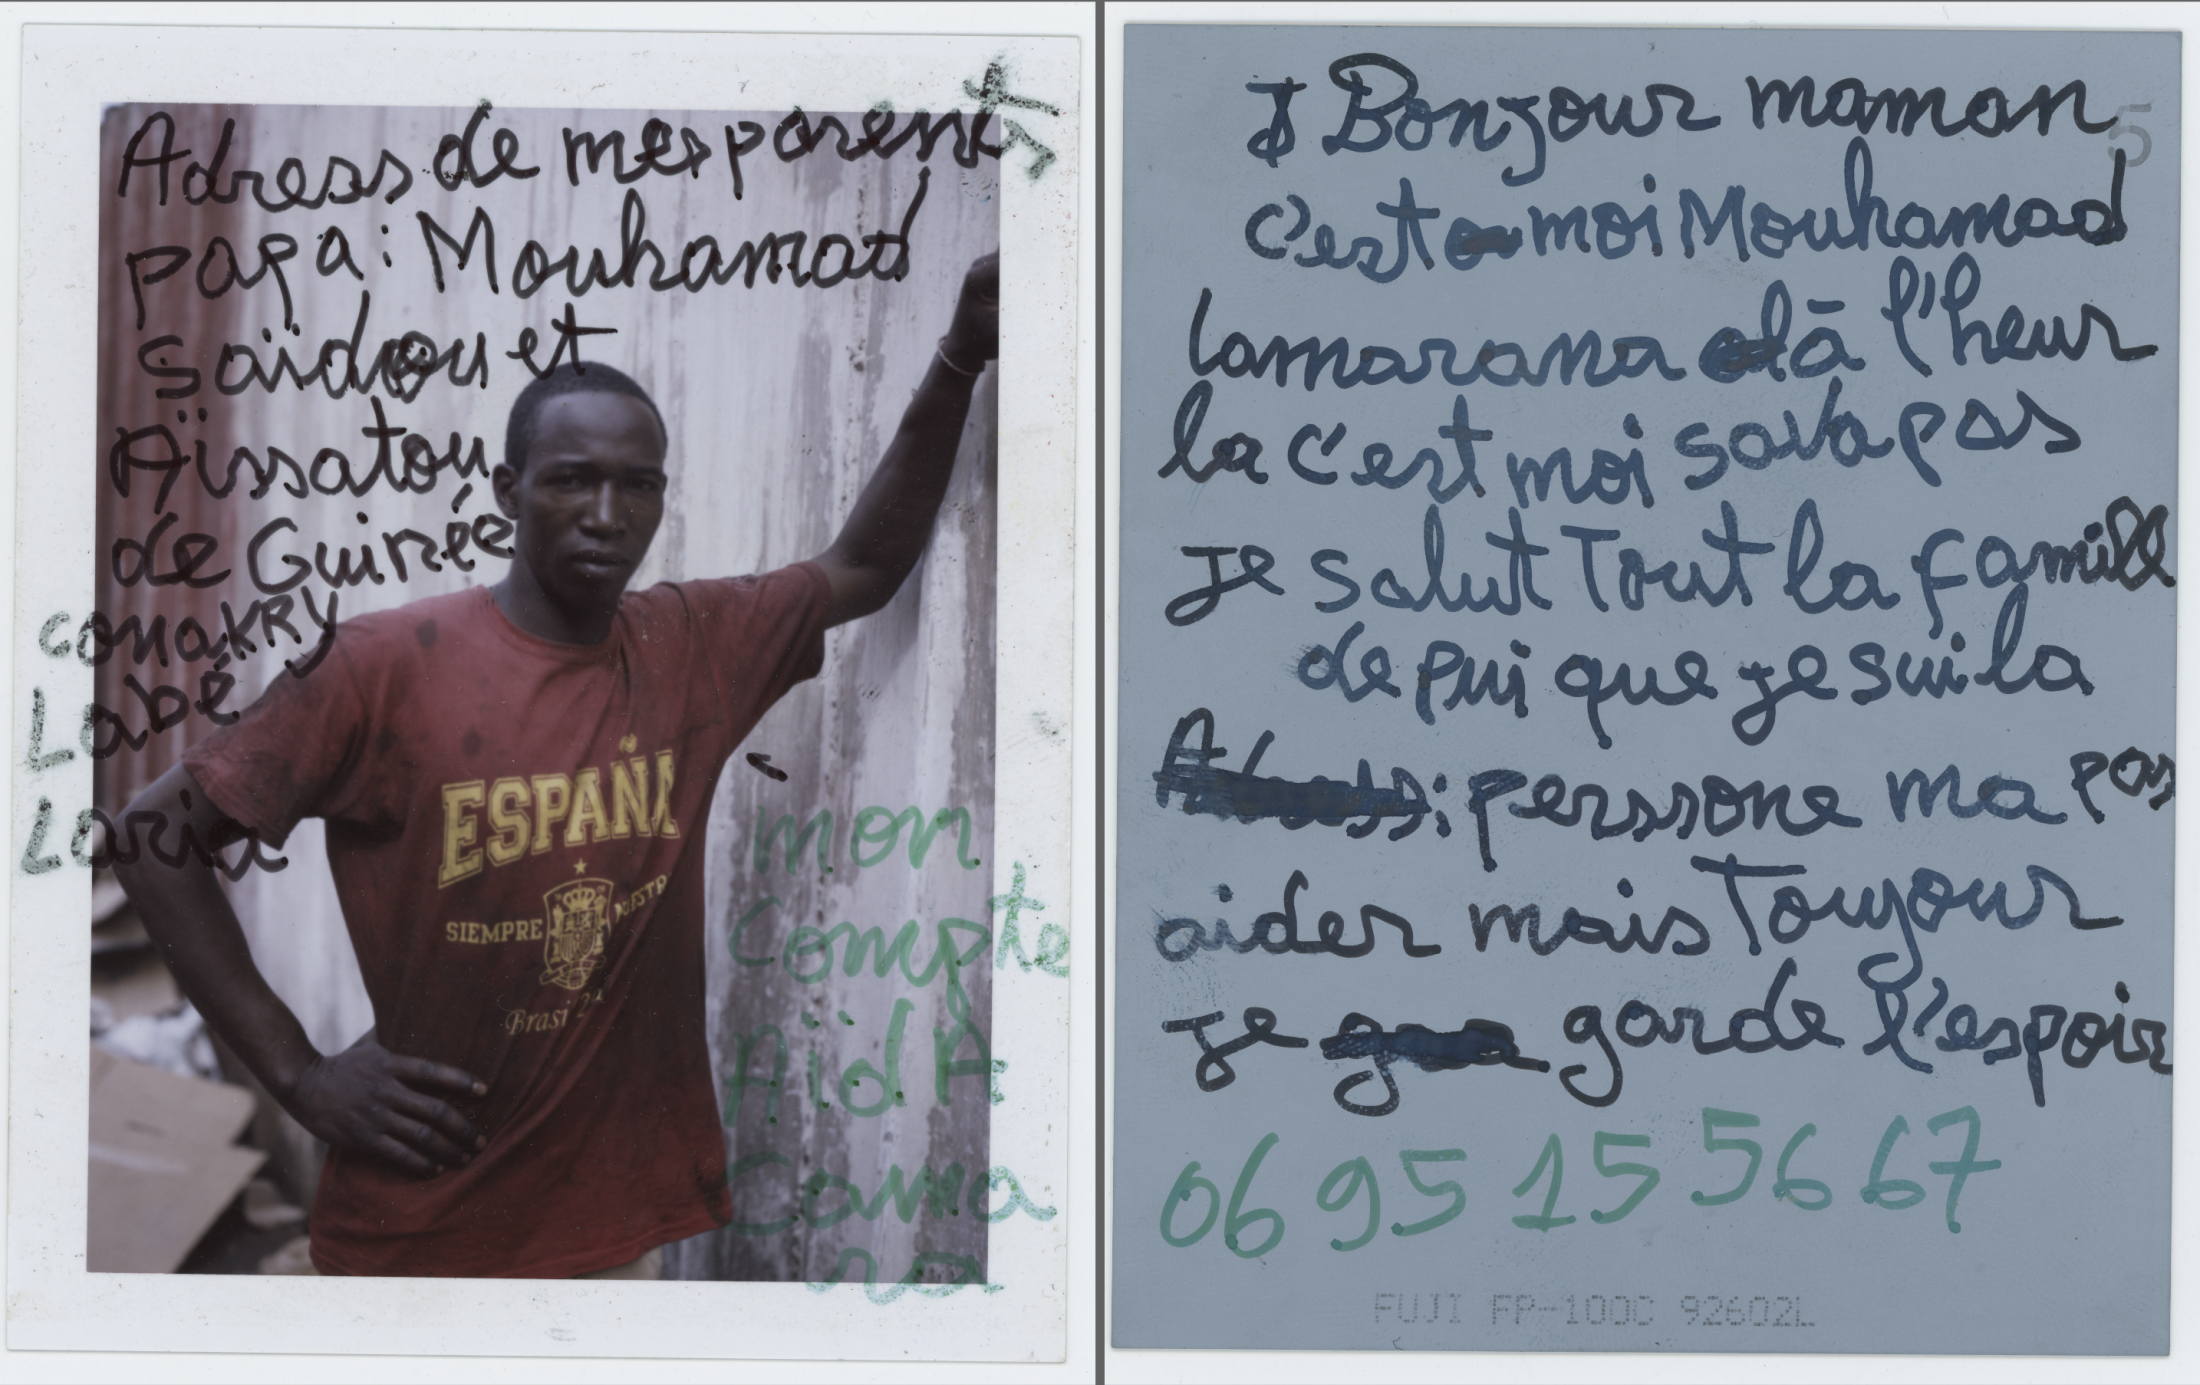 Adress de mes parents
papa: Mouhamad
saïdou et
Aïssatou
de Guinée
conaKRY
Labé
Laria
ESPAÑA
SIEMPRE NUESTR
Brasi 2
mon
Compte
AïdA
Cama
ra
5
Bonjour maman
c'est moi Mouhamad
lamarana à l'heur
la c'est moi sava pas
Je salut Tout la famill
depui que je suila
perssone ma pas
aider mais Toujour
je garde l'espoir
06 95 15 56 67
FUJI FP-100C 92602L